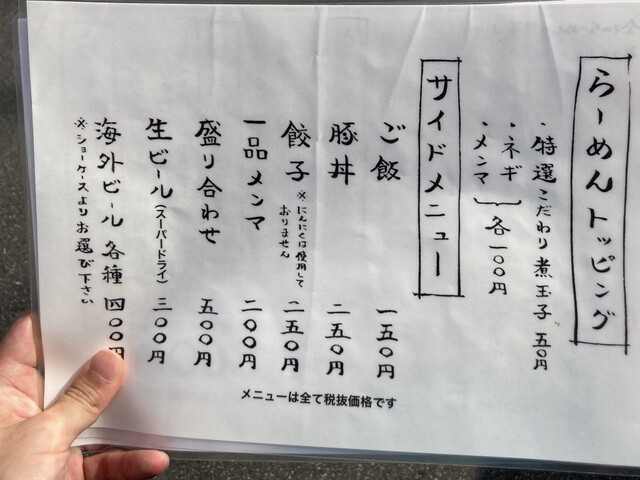 らーめんトッピング
・特選こだわり煮玉子 五〇円
・ネギ
・メンマ
各一〇〇円
サイドメニュー
ご飯 一五〇円
豚丼 二五〇円
餃子 ※にんにくは使用しておりません 二五〇円
一品メンマ 二〇〇円
盛り合わせ 五〇〇円
生ビール(スーパードライ) 三〇〇円
海外ビール各種 四〇〇円
※ショーケースよりお選び下さい
メニューは全て税抜価格です